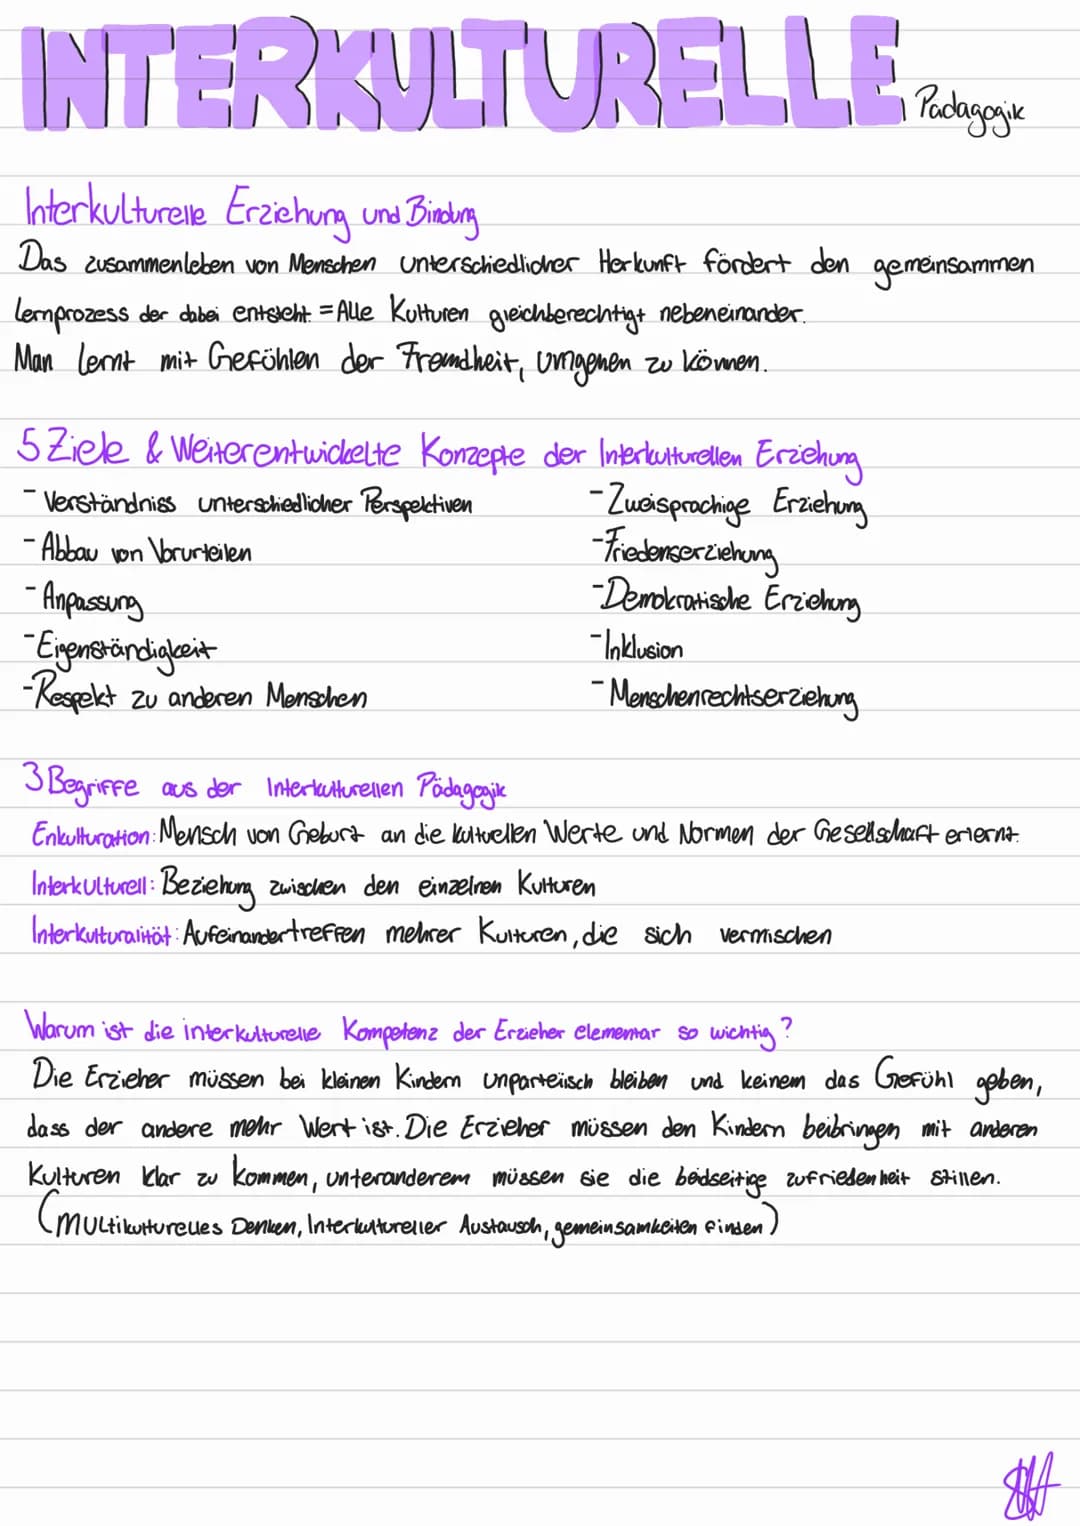 INTERKULTURELLE Pädagogik
Interkulturelle Erziehung und Bindung
Das zusammenleben von Menschen unterschiedlicher Herkunft fördert den gemeinsammen
Lernprozess der dabei entsteht. = Alle Kulturen gleichberechtigt nebeneinander.
Man lernt mit Gefühlen der Fremdheit, umgehen zu können.
5 Ziele & Weiterentwickelte Konzepte der Interkulturellen Erziehung
- Verständniss unterschiedlicher Perspektiven
- Abbau von Vorurteilen
- Anpassung
- Eigenständigkeit
- Respekt zu anderen Menschen
- Zweisprachige Erziehung
- Friedenserziehung
- Demokratische Erziehung
- Inklusion
- Menschenrechtserziehung
3 Begriffe aus der Interkulturellen Pädagogik
Enkulturation: Mensch von Geburt an die kulturellen Werte und Normen der Gesellschaft erlernt.
Interkulturell: Beziehung zwischen den einzelnen Kulturen
Interkulturalität: Aufeinandertreffen mehrer Kulturen, die sich vermischen
Warum ist die interkulturelle Kompetenz der Erzieher elementar so wichtig?
Die Erzieher müssen bei kleinen Kindern unparteiisch bleiben und keinem das Gefühl geben,
dass der andere mehr Wert ist. Die Erzieher müssen den Kindern beibringen mit anderen
Kulturen klar zu kommen, unteranderem müssen sie die beidseitige zufriedenheit stillen.
(Multikulturelles Denken, Interkultureller Austausch, gemeinsamkeiten finden)